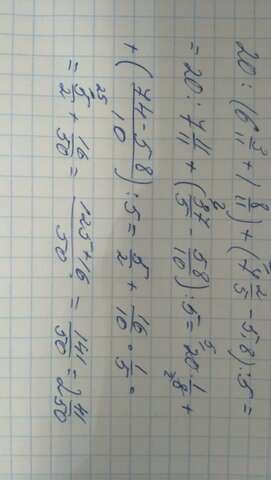 20 : (6 3/11 + 1 8/11) + (7 2/5 - 5,8) : 5 =
= 20 : 7 11/11 + (37/5 - 58/10) : 5 = 20 · 1/8 +
+ (74 - 58/10) : 5 = 5/2 + 16/10 · 1/5 =
= 5/2 + 16/50 = 125+16/50 = 141/50 = 2 41/50